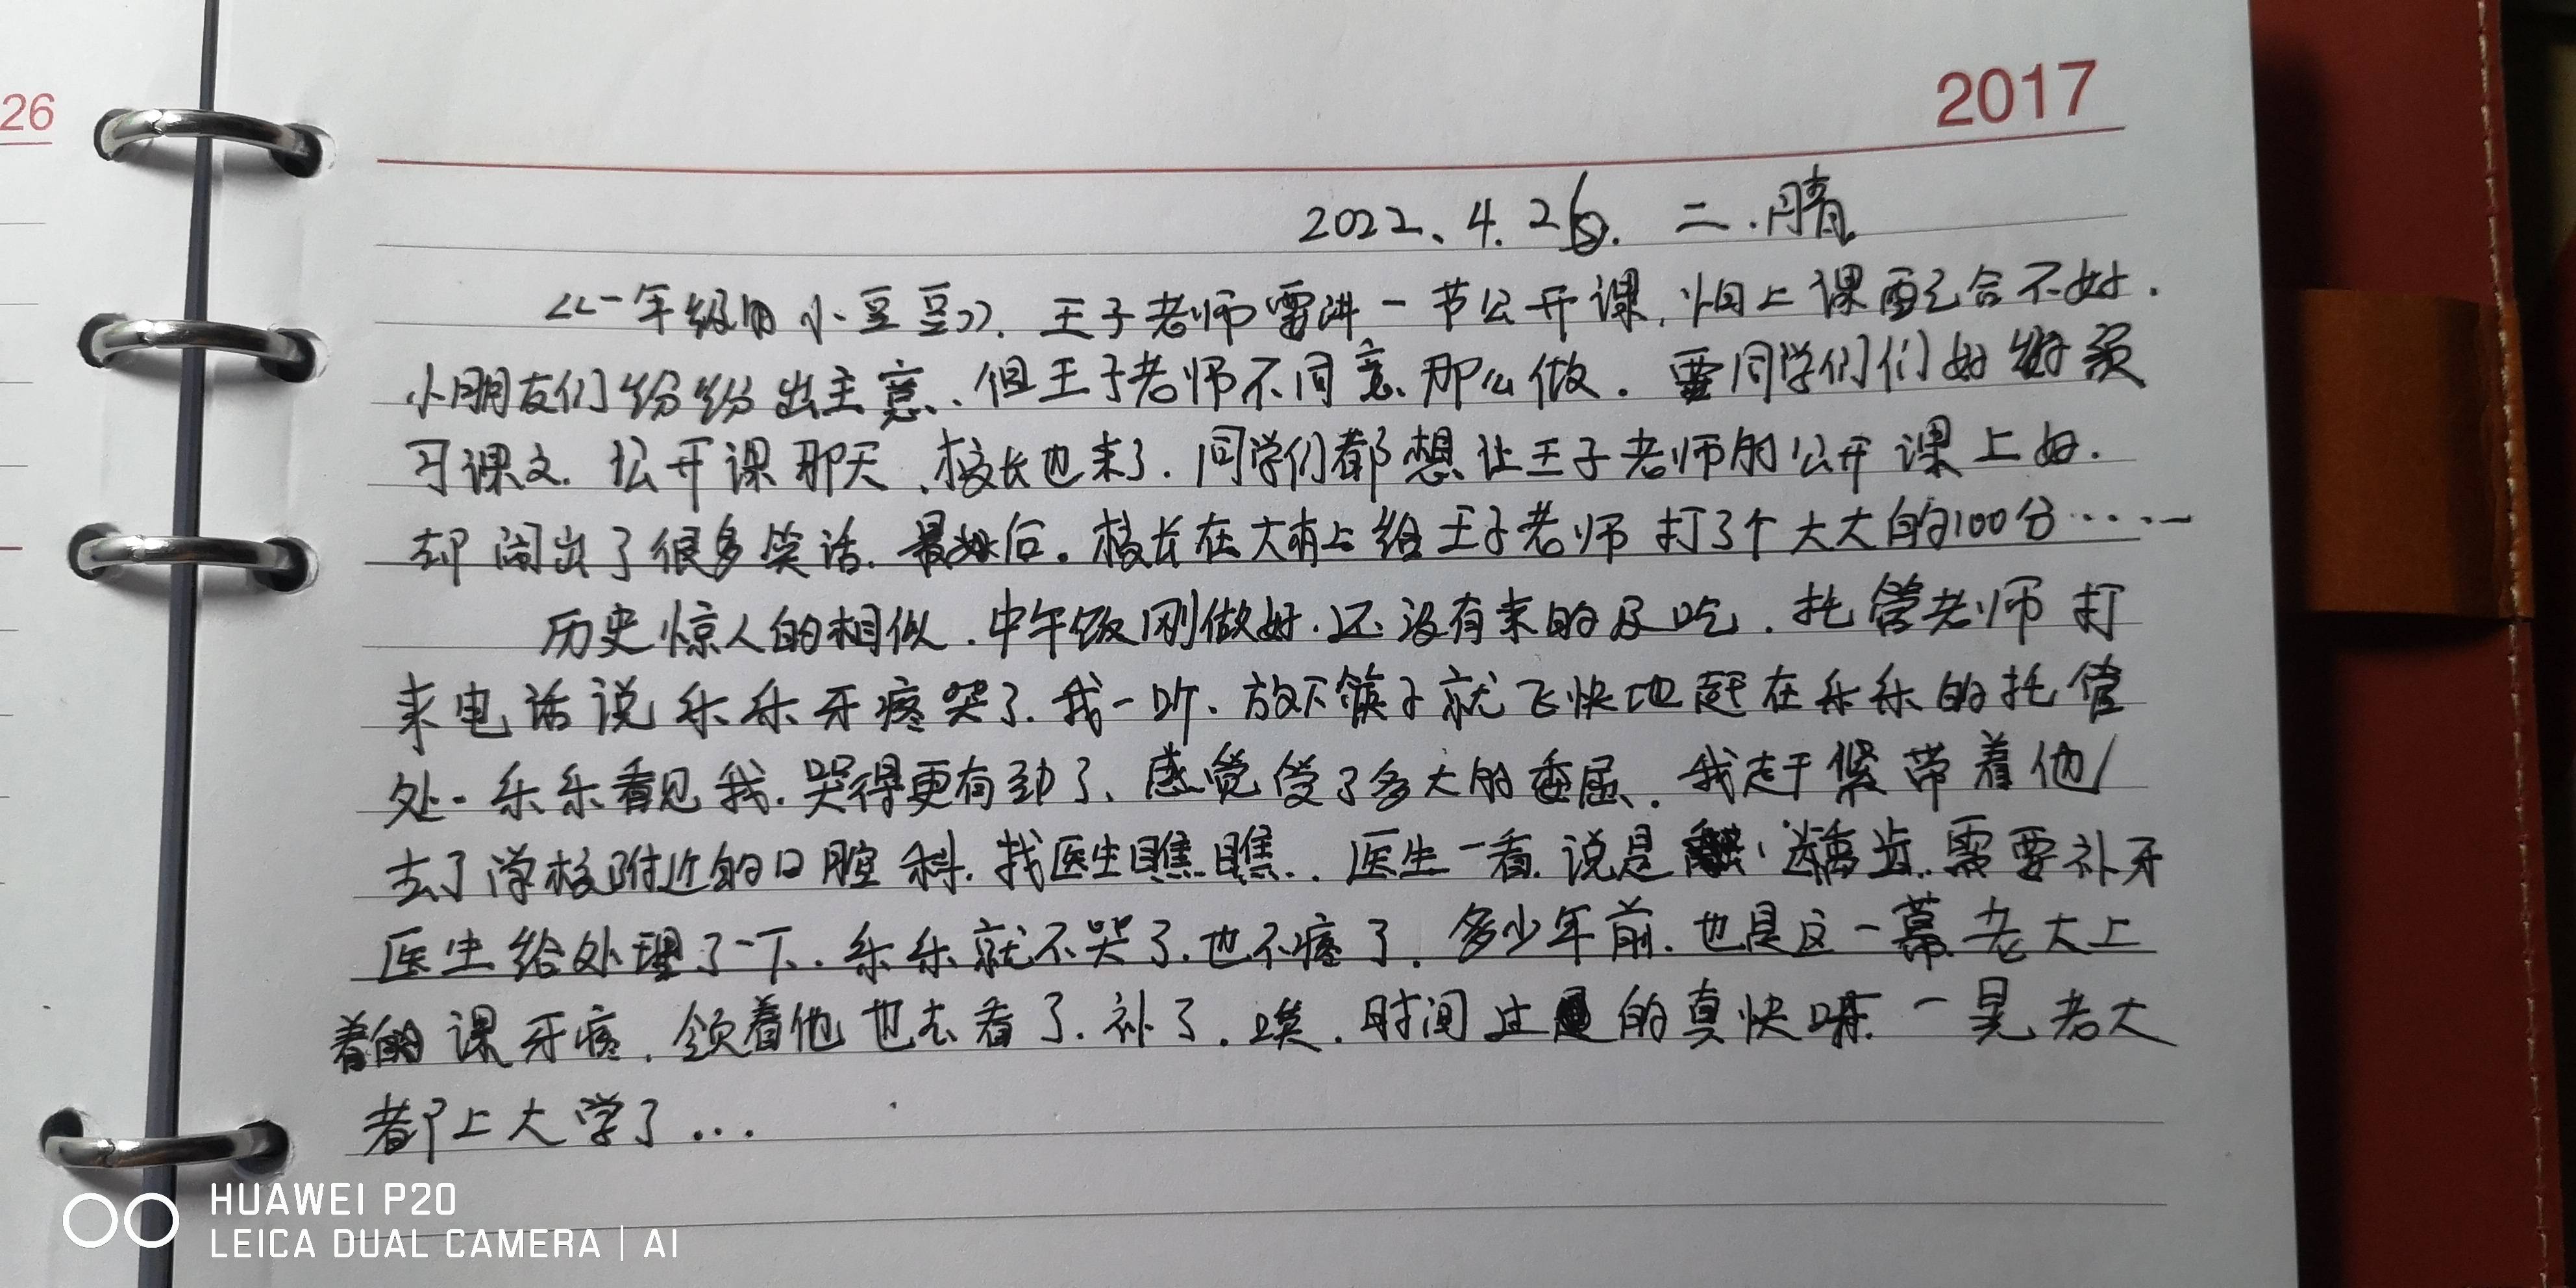 26
2017
2022、4. 26. 二.晴
《一年级的小豆豆》. 王子老师要讲一节公开课, 怕上课配合不好.
小朋友们纷纷出主意.但王子老师不同意那么做. 要同学们们好好预
习课文. 公开课那天、校长也来了. 同学们都想让王子老师的公开课上好.
却闹出了很多笑话. 最后。校长在大树上给王子老师打了个大大的100分……
历史惊人的相似.中午饭刚做好.还没有来的及吃. 托管老师打
来电话说乐乐牙疼哭了. 我一听、放下筷子就飞快地赶在乐乐的托管
处. 乐乐看见我. 哭得更有劲了、感觉受了多大的委屈. 我赶紧带着他
去了学校附近的口腔科. 找医生瞧瞧.. 医生一看. 说是龋齿. 需要补牙
医生给处理了一下. 乐乐就不哭了.也不疼了. 多少年前. 也是这一幕 老大上
着课牙疼. 领着他也去看了. 补了. 唉. 时间过的真快呀. 一晃老大
都上大学了...
HUAWEI P20
LEICA DUAL CAMERA | AI